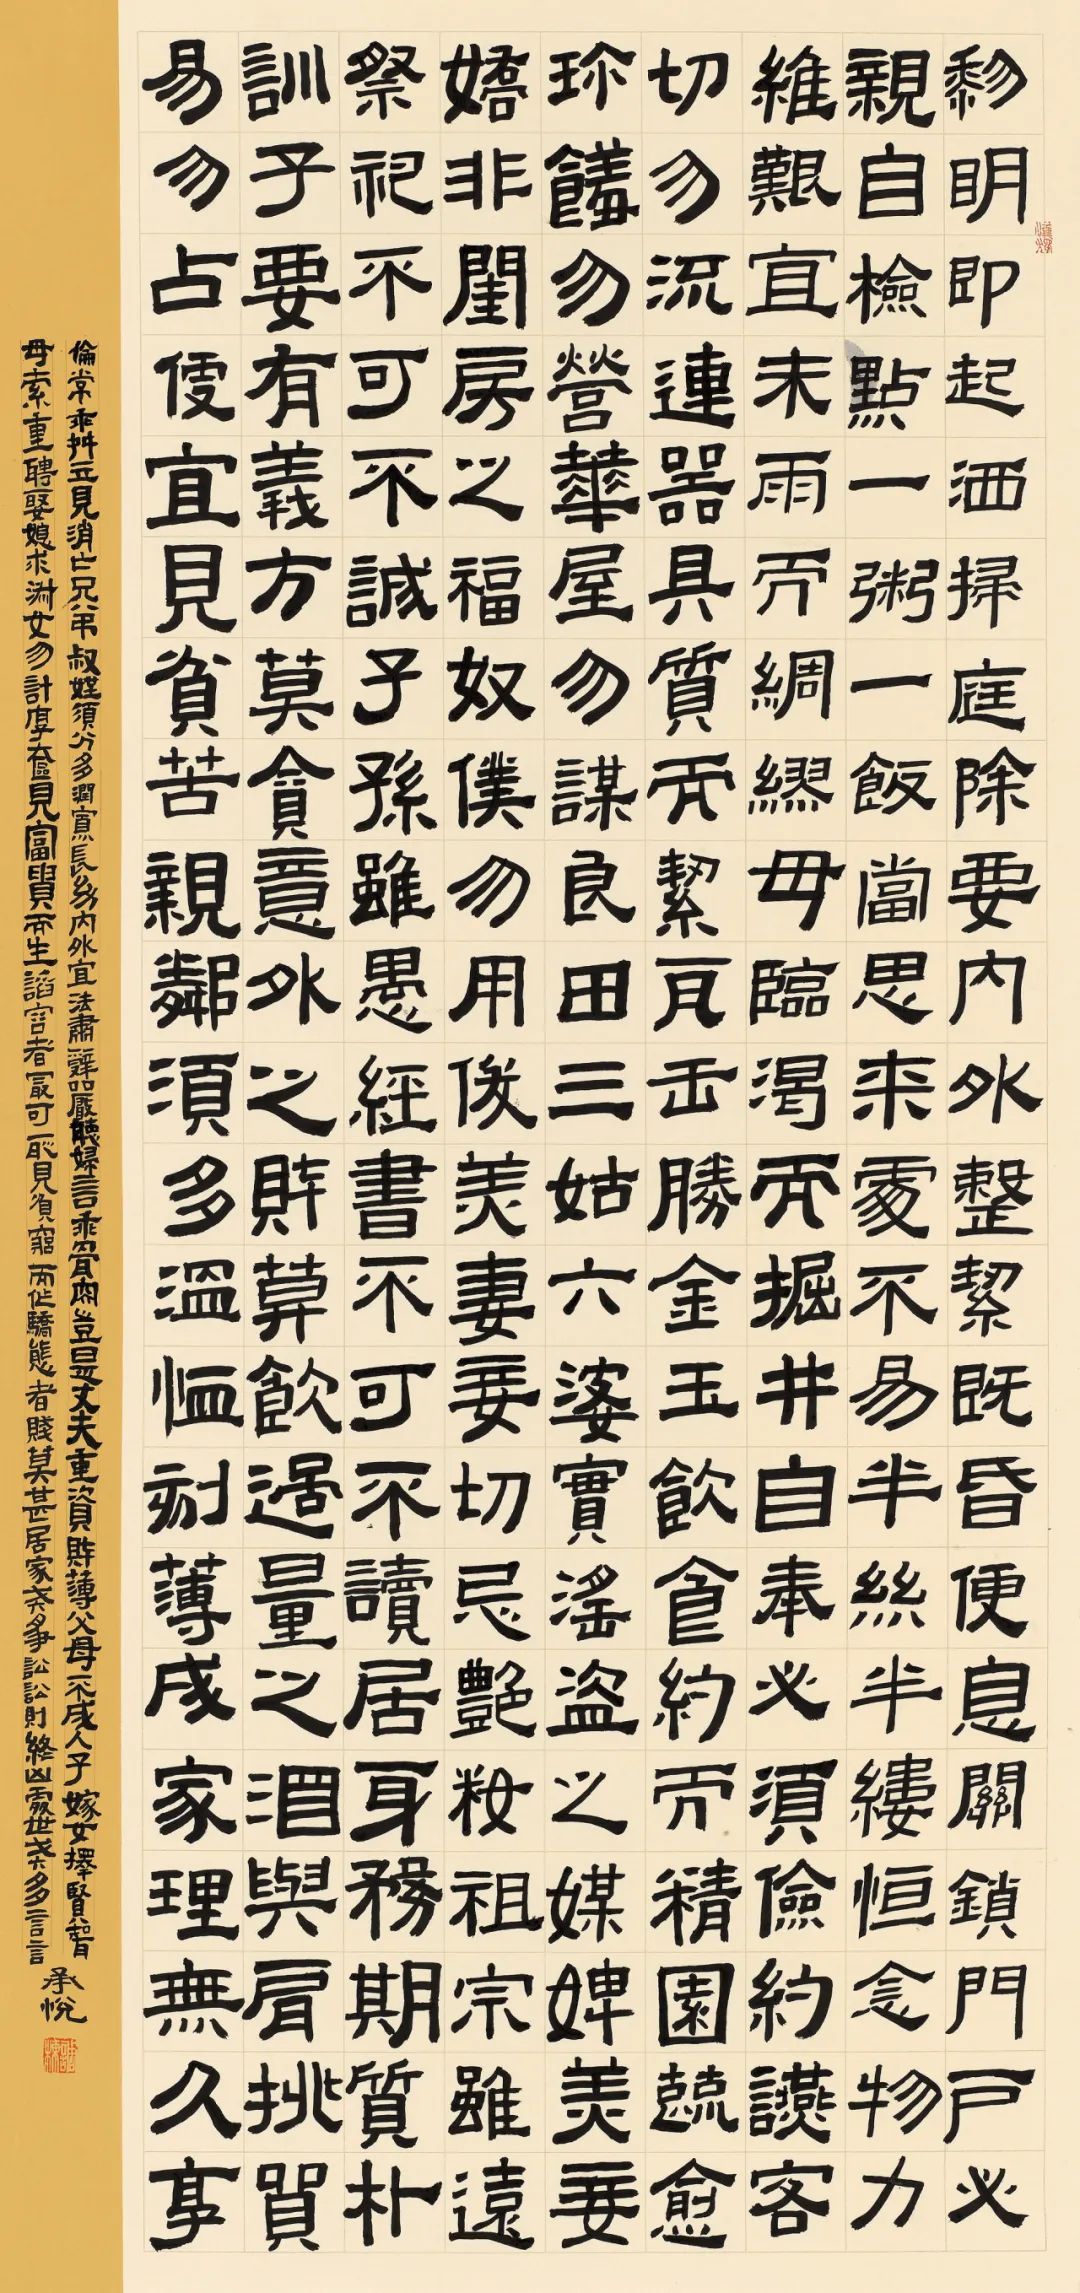 黎明即起洒掃庭除要内外整絜既昏便息關鎖門戶必
親自檢點一粥一飯當思来處不易半絲半縷恒念物力
維艱宜未雨而綢繆毋臨渴而掘井自奉必須儉約讌客
切勿流連器具質而絜瓦缶勝金玉飲食約而精園蔬愈
珍饈勿營華屋勿謀良田三姑六婆實淫盜之媒婢美妾
嬌非閨房之福奴僕勿用俊美妻妾切忌艷粧祖宗雖遠
祭祀不可不誠子孫雖愚經書不可不讀居身務期質朴
訓子要有義方莫貪意外之財莫飲過量之酒與肩挑貿
易勿占便宜見貧苦親鄰須多溫恤刻薄成家理無久享
倫常乖舛立見消亡兄弟叔姪須分多潤寡長幼内外宜法肅辭嚴聽婦言乖骨肉豈是丈夫重資財薄父母不成人子嫁女擇賢聟
毋索重聘娶媳求淑女勿計厚奩見富貴而生諂容者最可恥見貧窮而作驕態者賤莫甚居家戒爭訟訟則終凶處世戒多言言
承悅